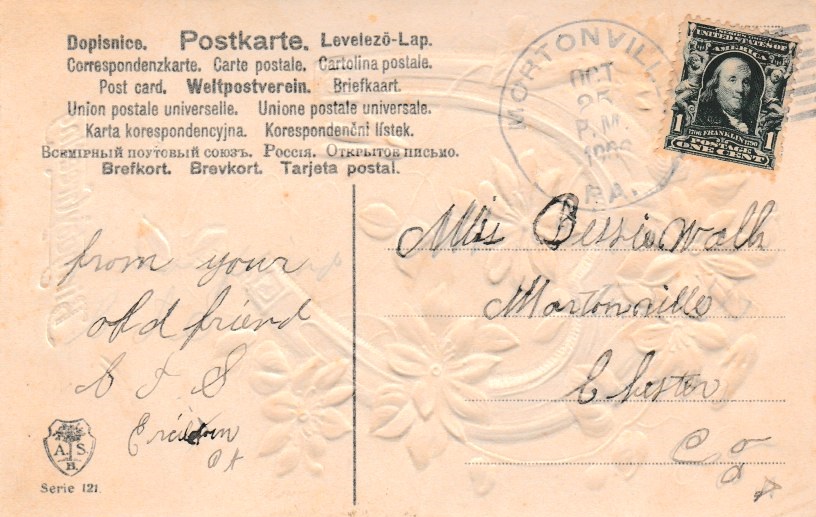 Dopisnice. Postkarte. Levelező-Lap.
Correspondenzkarte. Carte postale. Cartolina postale.
Post card. Weltpostverein. Briefkaart.
Union postale universelle. Unione postale universale.
Karta korespondencyjna. Korespondenční lístek.
Всемірный почтовый союзъ. Россія. Открытое письмо.
Brefkort. Brevkort. Tarjeta postal.
MORTONVILL
OCT
25
P.M.
PA.
UNITED STATES OF
AMERICA
1 FRANKLIN 1
POSTAGE
ONE CENT
from your
old friend
S
Miss Bessie Walk
Mortonville
Chester
Co
Pa
A. S.
B.
Serie 121.